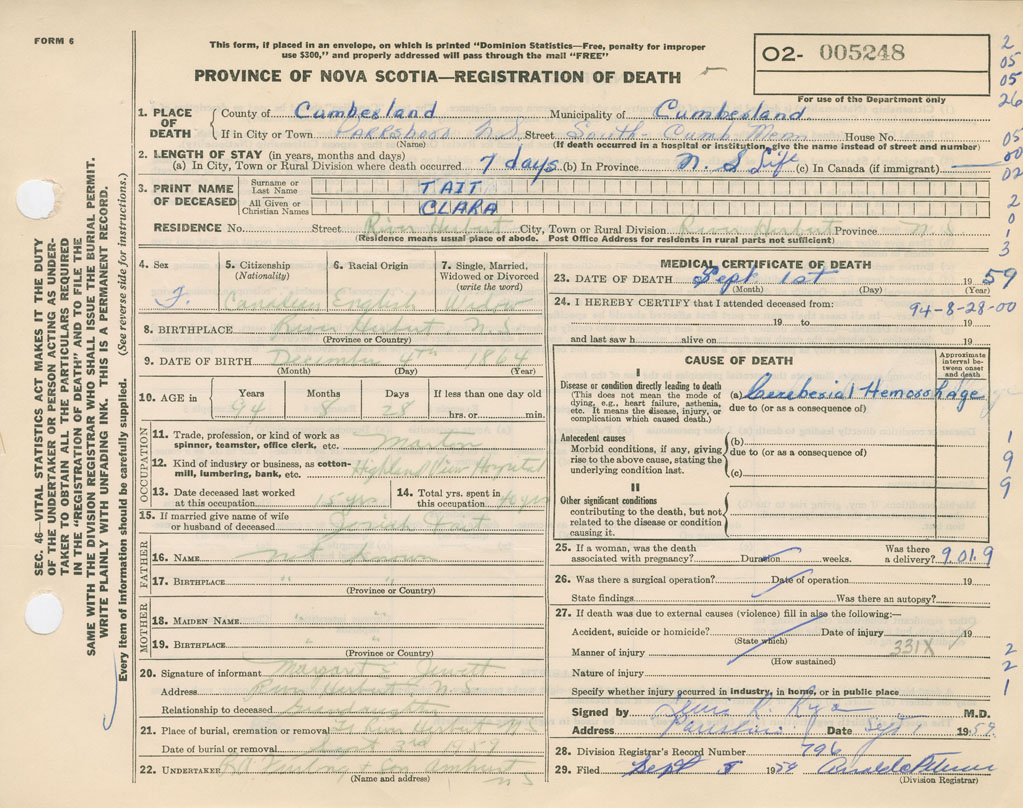 FORM 6
This form, if placed in an envelope, on which is printed "Dominion Statistics—Free, penalty for improper
use $300," and properly addressed will pass through the mail "FREE"
PROVINCE OF NOVA SCOTIA—REGISTRATION OF DEATH
02- 005248
For use of the Department only
2
05
05
26
05
00
02
2
0
1
3
SEC. 46—VITAL STATISTICS ACT MAKES IT THE DUTY
OF THE UNDERTAKER OR PERSON ACTING AS UNDER-
TAKER TO OBTAIN ALL THE PARTICULARS REQUIRED
IN THE "REGISTRATION OF DEATH" AND TO FILE THE
SAME WITH THE DIVISION REGISTRAR WHO SHALL ISSUE THE BURIAL PERMIT.
WRITE PLAINLY WITH UNFADING INK. THIS IS A PERMANENT RECORD.
Every item of information should be carefully supplied. (See reverse side for instructions.)
1. PLACE OF DEATH
County of Cumberland Municipality of Cumberland
If in City or Town Parrsboro N.S Street South Cumb Mem House No.
(Name) (If death occurred in a hospital or institution, give the name instead of street and number)
2. LENGTH OF STAY (in years, months and days)
(a) In City, Town or Rural Division where death occurred 7 days (b) In Province N. S Life (c) In Canada (if immigrant)
3. PRINT NAME OF DECEASED
Surname or Last Name TAIT
All Given or Christian Names CLARA
RESIDENCE No. Street River Hebert City, Town or Rural Division River Hebert Province N.S.
(Residence means usual place of abode. Post Office Address for residents in rural parts not sufficient)
4. Sex F.
5. Citizenship (Nationality) Canadian
6. Racial Origin English
7. Single, Married, Widowed or Divorced (write the word) Widow
8. BIRTHPLACE River Hebert N.S.
(Province or Country)
9. DATE OF BIRTH December 4th 1864
(Month) (Day) (Year)
10. AGE in Years Months Days If less than one day old
94 8 28 hrs. or min.
OCCUPATION
11. Trade, profession, or kind of work as spinner, teamster, office clerk, etc. Matron
12. Kind of industry or business, as cotton-mill, lumbering, bank, etc. Highland View Hospital
13. Date deceased last worked at this occupation 15 yrs
14. Total yrs. spent in this occupation 40 yrs
15. If married give name of wife or husband of deceased Josiah Tait
FATHER
16. NAME not known
17. BIRTHPLACE " "
(Province or Country)
MOTHER
18. MAIDEN NAME " "
19. BIRTHPLACE " "
(Province or Country)
20. Signature of informant Margaret E Jewett
Address River Hebert N.S.
Relationship to deceased Grandaughter
21. Place of burial, cremation or removal River Hebert N.S
Date of burial or removal Sept 3rd 1959
22. UNDERTAKER & Son Amherst N S
(Name and address)
MEDICAL CERTIFICATE OF DEATH
23. DATE OF DEATH Sept 1st 1959
(Month) (Day) (Year)
24. I HEREBY CERTIFY that I attended deceased from: 94-8-28-00
19 to 19
and last saw h alive on 19
CAUSE OF DEATH
Approximate interval between onset and death
I
Disease or condition directly leading to death
(This does not mean the mode of dying, e.g., heart failure, asthenia, etc. It means the disease, injury, or complication which caused death.)
(a) Cerebral Hemorrhage
due to (or as a consequence of)
Antecedent causes
Morbid conditions, if any, giving rise to the above cause, stating the underlying condition last.
(b)
due to (or as a consequence of)
(c)
II
Other significant conditions
contributing to the death, but not related to the disease or condition causing it.
1
9
9
25. If a woman, was the death associated with pregnancy? Duration weeks. Was there a delivery? 9.01.9
26. Was there a surgical operation? Date of operation 19
State findings Was there an autopsy?
27. If death was due to external causes (violence) fill in also the following:—
Accident, suicide or homicide? Date of injury 19
(State which)
331X
Manner of injury
(How sustained)
Nature of injury
Specify whether injury occurred in industry, in home, or in public place
2
2
1
Signed by M.D.
Address Parrsboro Date Sept 1 1959
28. Division Registrar's Record Number 796
29. Filed Sept 8 1959
(Division Registrar)